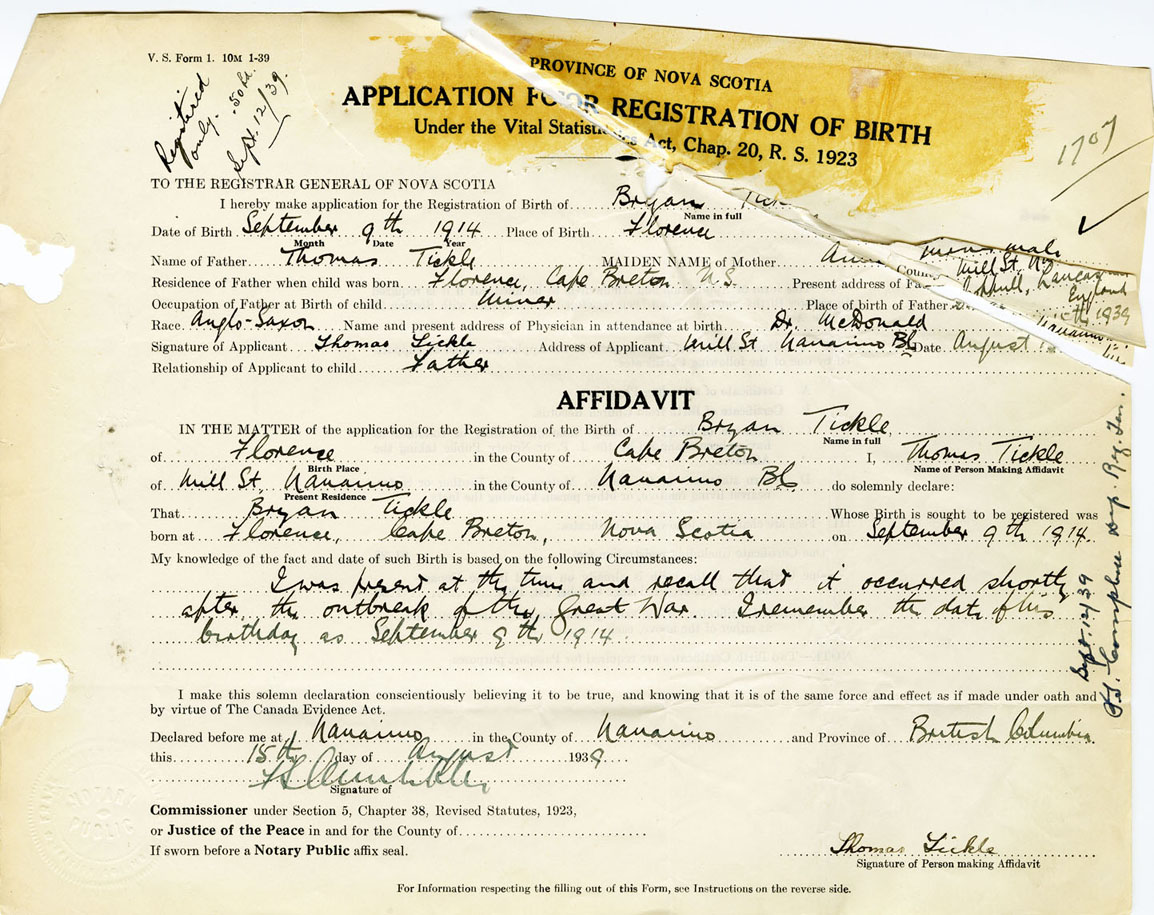 V. S. Form 1. 10M 1-39
Registered only. .50 Pd. Sept. 12/39.
PROVINCE OF NOVA SCOTIA
APPLICATION FOR REGISTRATION OF BIRTH
Under the Vital Statistics Act, Chap. 20, R. S. 1923
1707
TO THE REGISTRAR GENERAL OF NOVA SCOTIA
I hereby make application for the Registration of Birth of Bryan Tick
Name in full
Date of Birth September 9th 1914 Place of Birth Florence
Month Date Year
Name of Father Thomas Tickle MAIDEN NAME of Mother
County Mill St.
Residence of Father when child was born Florence, Cape Breton N.S. Present address of Fa
England
Occupation of Father at Birth of child Miner Place of birth of Father
1939
Race Anglo-Saxon Name and present address of Physician in attendance at birth Dr. McDonald
Signature of Applicant Thomas Tickle Address of Applicant Mill St Nanaimo BC Date August
Relationship of Applicant to child Father
AFFIDAVIT
IN THE MATTER of the application for the Registration of the Birth of Bryan Tickle
Name in full
of Florence in the County of Cape Breton I, Thomas Tickle
Birth Place Name of Person Making Affidavit
of Mill St. Nanaimo in the County of Nanaimo BC do solemnly declare:
Present Residence
That Bryan Tickle Whose Birth is sought to be registered was
born at Florence, Cape Breton, Nova Scotia on September 9th 1914.
My knowledge of the fact and date of such Birth is based on the following Circumstances:
I was present at the time and recall that it occurred shortly
after the outbreak of the Great War. I remember the date of his
birthday as September 9th 1914.
I make this solemn declaration conscientiously believing it to be true, and knowing that it is of the same force and effect as if made under oath and
by virtue of The Canada Evidence Act.
Declared before me at Nanaimo in the County of Nanaimo and Province of British Columbia
this 15th day of August 1939
Signature of
Commissioner under Section 5, Chapter 38, Revised Statutes, 1923,
or Justice of the Peace in and for the County of
If sworn before a Notary Public affix seal.
Thomas Tickle
Signature of Person making Affidavit
For Information respecting the filling out of this Form, see Instructions on the reverse side.
Sept. 12/39
Dep. Reg. Gen.
NOTARY PUBLIC